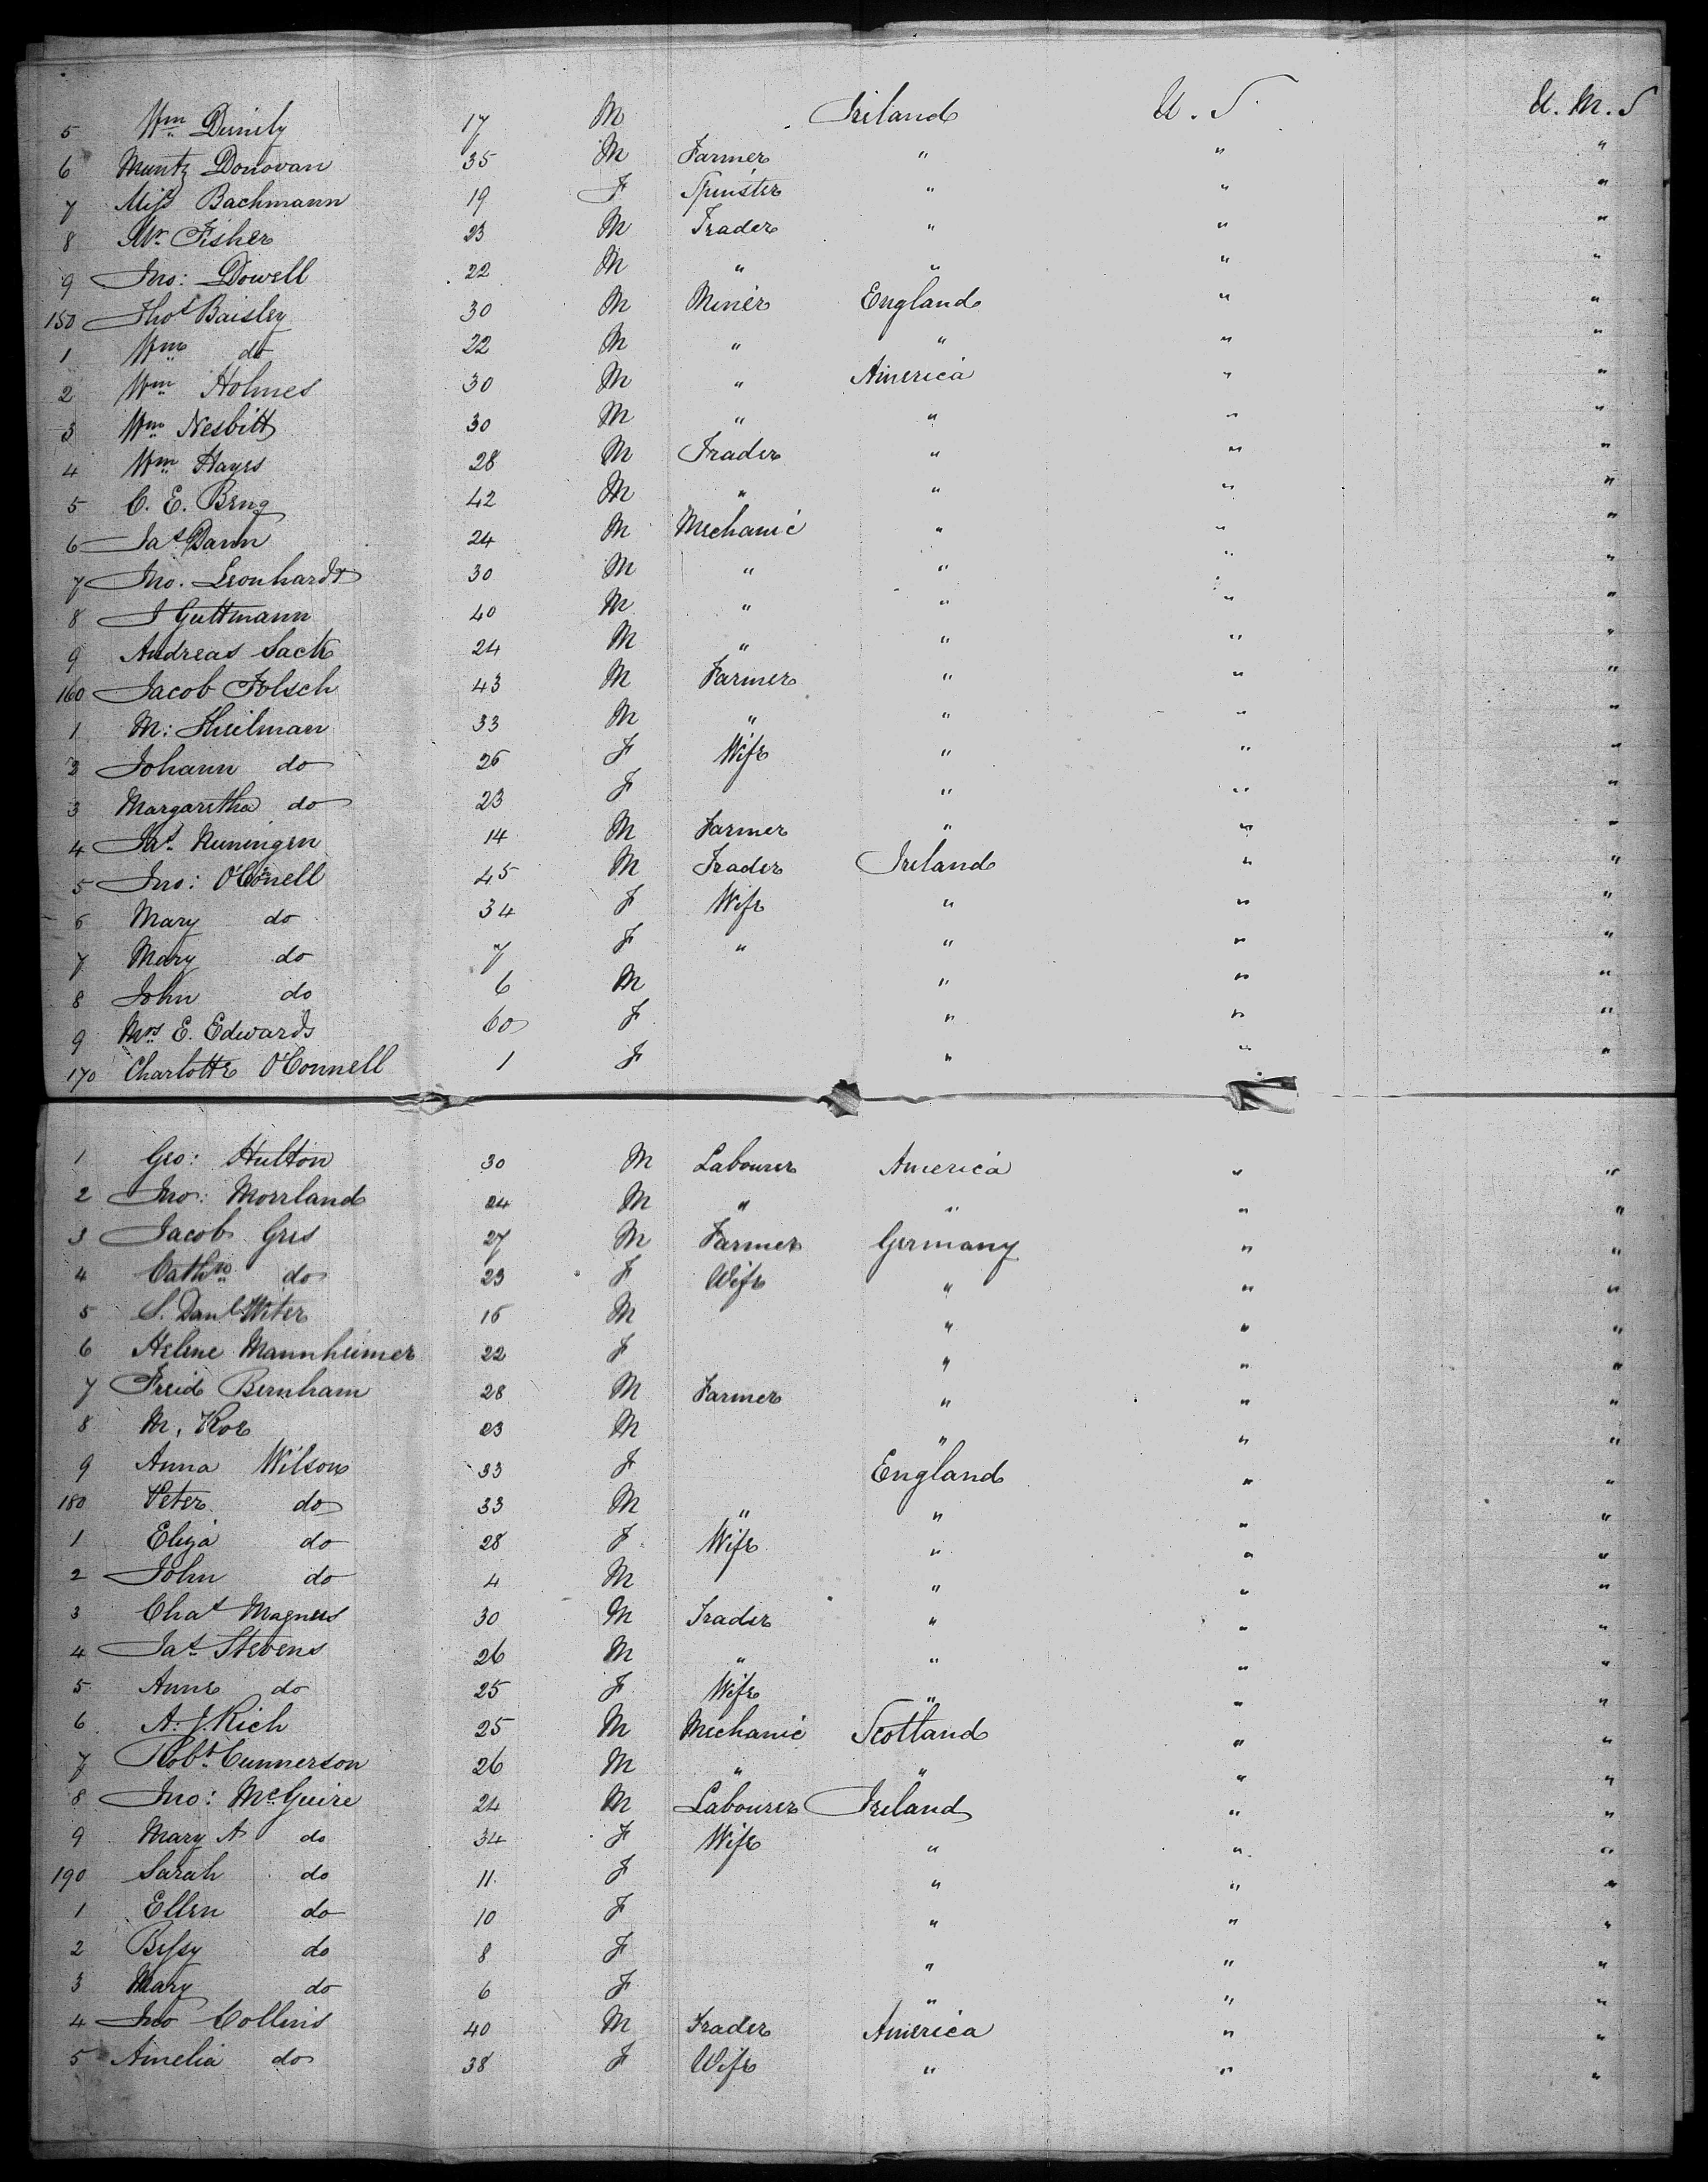 5 Wm Dunily 17 M Ireland U. S. U. M. S
6 Muntz Donovan 35 M Farmer " " "
7 Miss Bachmann 19 F Spinster " " "
8 Mr Fisher 23 M Trader " " "
9 Jno: Dowell 22 M " " " "
150 Thos Baisley 30 M Miner England " "
1 Wm do 22 M " " " "
2 Wm Holmes 30 M " America " "
3 Wm Nesbitt 30 M " " " "
4 Wm Hayes 28 M Trader " " "
5 C. E. Beng 42 M " " " "
6 Jas Dann 24 M Mechanic " " "
7 Jno. Leonhardt 30 M " " " "
8 J Guttmann 40 M " " " "
9 Andreas Sack 24 M " " " "
160 Jacob Folsch 43 M Farmer " " "
1 M: Sheilman 33 M " " " "
2 Johann do 26 F Wife " " "
3 Margaretha do 23 F " " "
4 Jas Nuningen 14 M Farmer " " "
5 Jno: O'Connell 45 M Trader Ireland " "
6 Mary do 34 F Wife " " "
7 Mary do 7 F " " " "
8 John do 6 M " " "
9 Mrs E. Edwards 60 F " " "
170 Charlotte O'Connell 1 F " " "
1 Geo: Hulton 30 M Labourer America " "
2 Jno: Morrland 24 M " " " "
3 Jacob Gres 27 M Farmer Germany " "
4 Cathne do 23 F Wife " " "
5 S. Danl Witer 16 M " " "
6 Helene Mannheimer 22 F " " "
7 Freid Bernham 28 M Farmer " " "
8 M. Koe 23 M " " "
9 Anna Wilson 33 F England " "
180 Peter do 33 M " " " "
1 Eliza do 28 F Wife " " "
2 John do 4 M " " "
3 Chas Magnus 30 M Trader " " "
4 Jas Stevens 26 M " " " "
5 Anne do 25 F Wife " " "
6 A. J. Rich 25 M Mechanic Scotland " "
7 Robt Cunnerson 26 M " " " "
8 Jno: McGuire 24 M Labourer Ireland " "
9 Mary A do 34 F Wife " " "
190 Sarah do 11 F " " "
1 Ellen do 10 F " " "
2 Bessy do 8 F " " "
3 Mary do 6 F " " "
4 Jno Collins 40 M Trader America " "
5 Amelia do 38 F Wife " " "